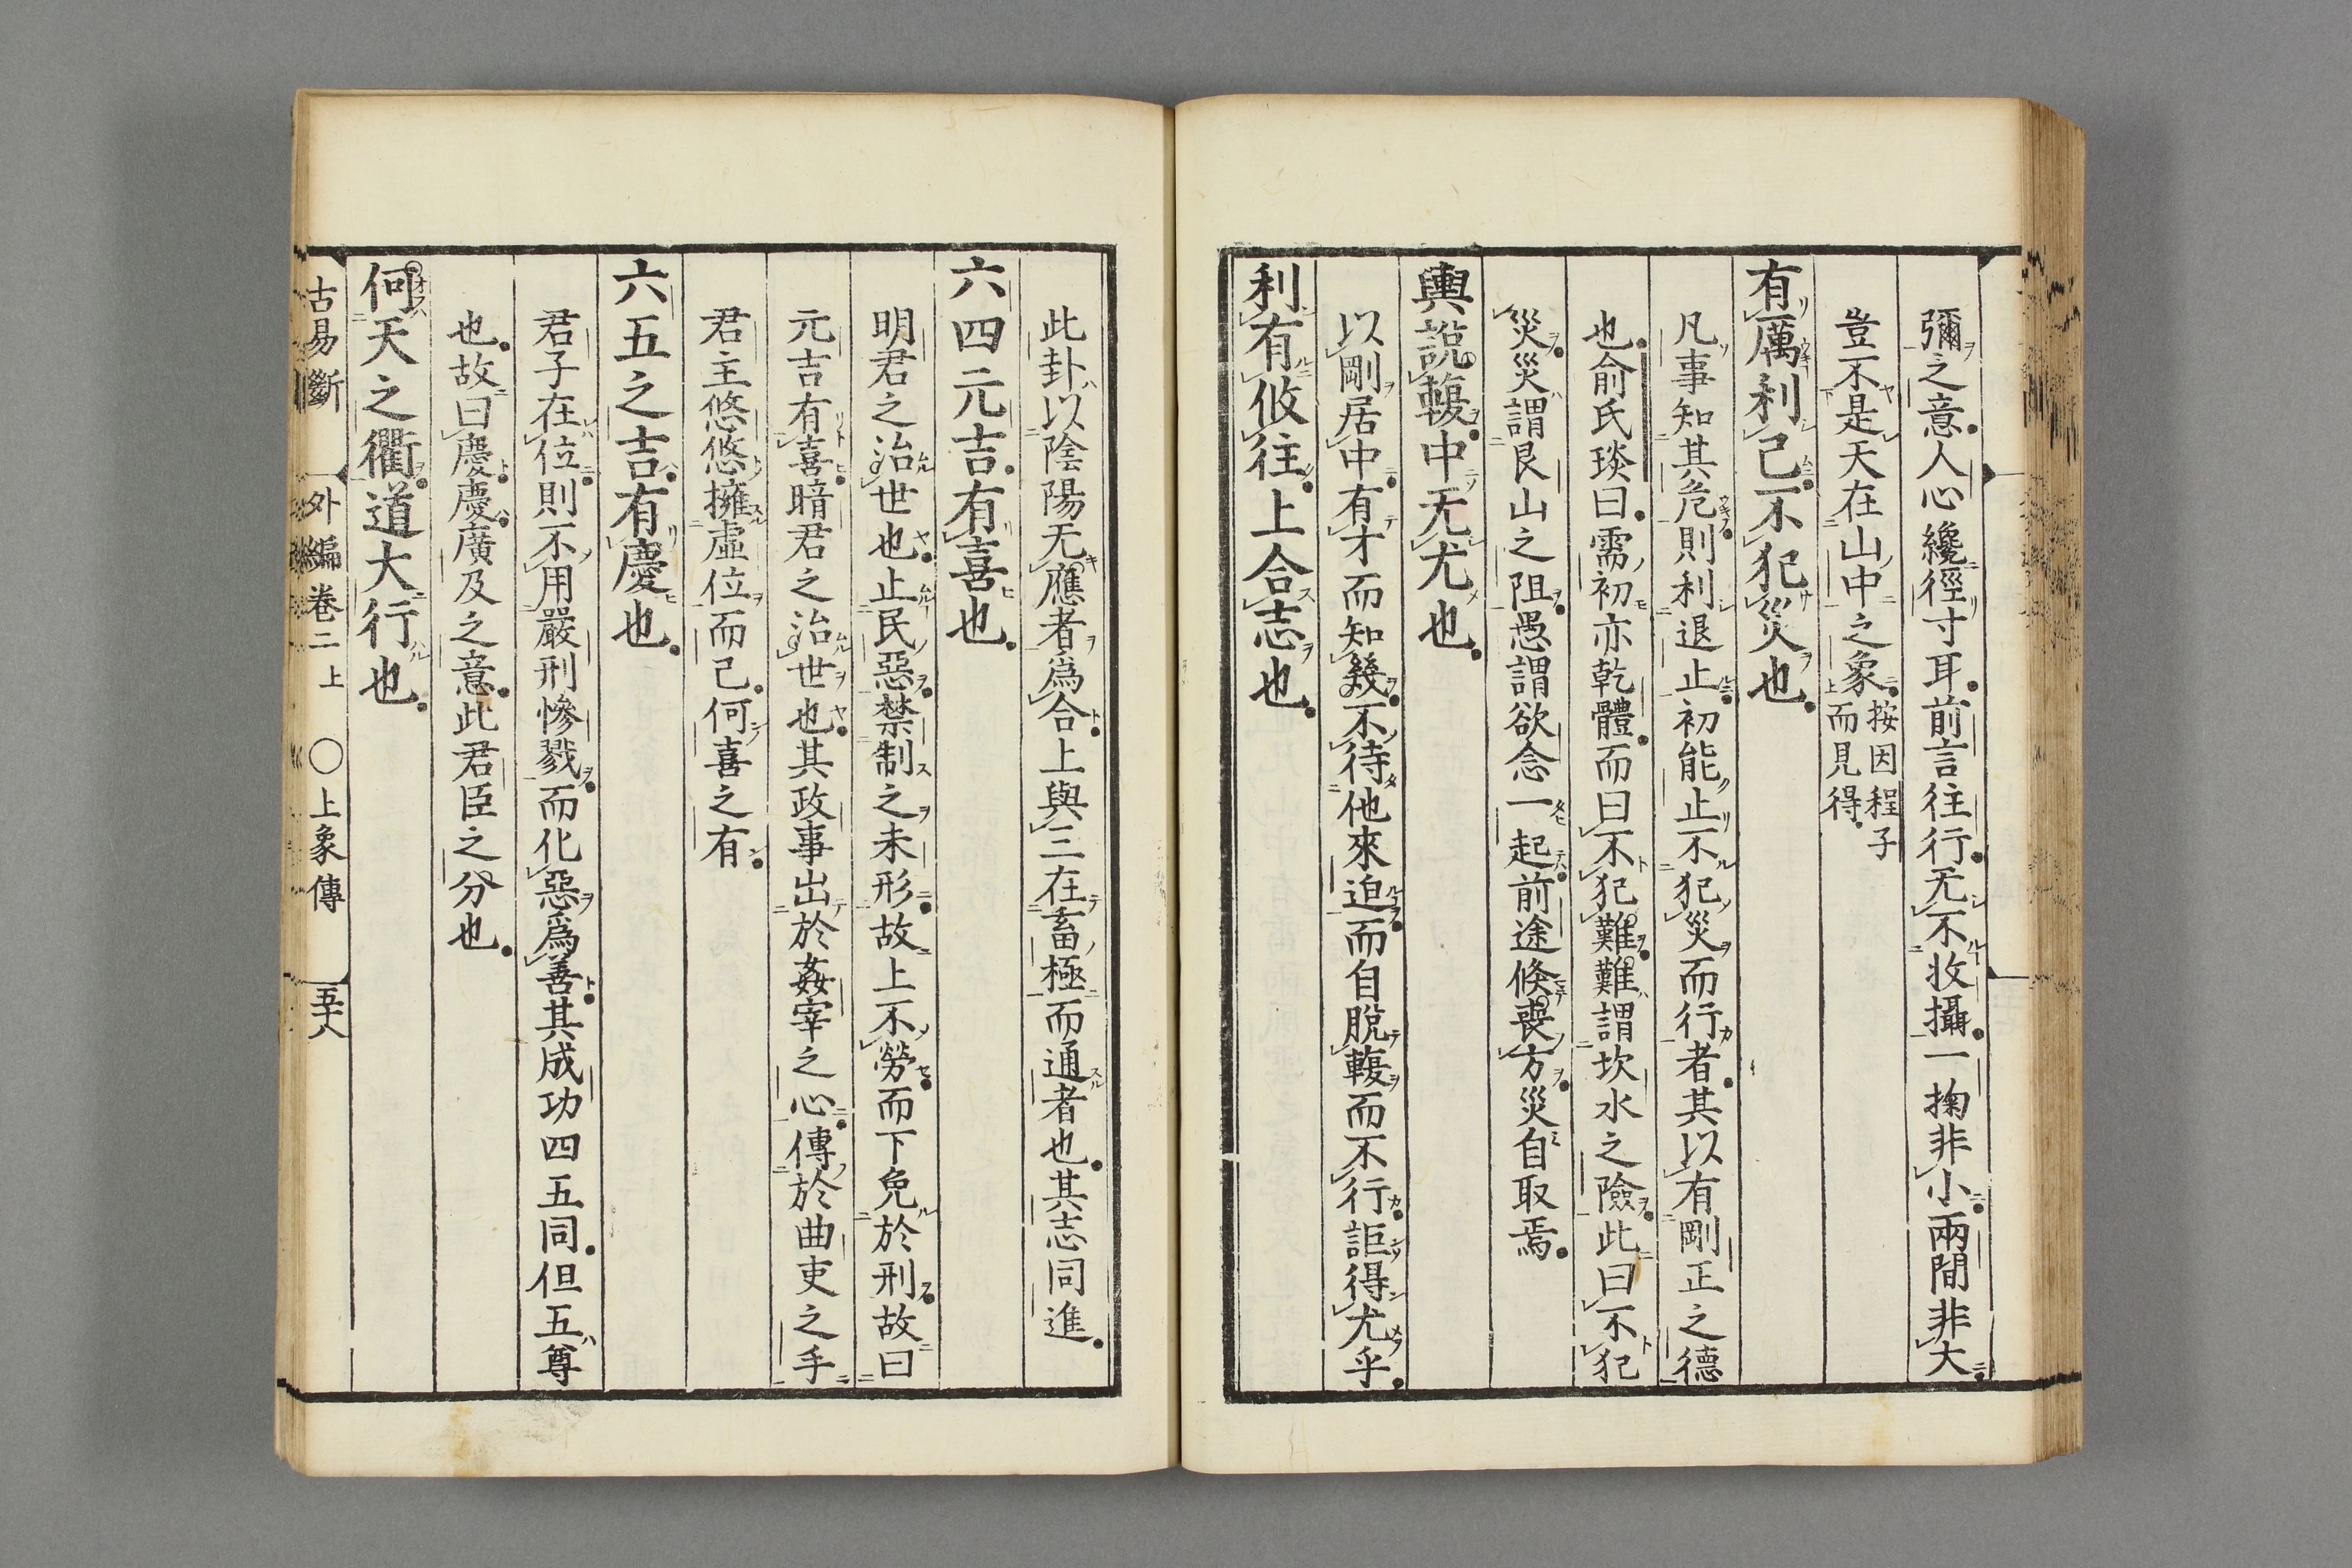 彌之意人心纔徑寸耳前言往行无不收攝一掬非小兩間非大
豈不是天在山中之象按因程子
而見得
有厲利已不犯災也
凡事知其危則利退止初能止不犯災而行者其以有剛正之德
也俞氏琰曰需初亦乾體而曰不犯難難謂坎水之險此曰不犯
災災謂艮山之阻愚謂欲念一起前途倏喪方災自取焉
輿說輹中无尤也
以剛居中有才而知幾不待他來迫而自脫輹而不行詎得尤乎
利有攸往上合志也
此卦以陰陽无應者爲合上與三在畜極而通者也其志同進
六四元吉有喜也
明君之治世也止民惡禁制之未形故上不勞而下免於刑故曰
元吉有喜暗君之治世也其政事出於姦宰之心傳於曲吏之手
君主悠悠擁虛位而已何喜之有
六五之吉有慶也
君子在位則不用嚴刑慘戮而化惡爲善其成功四五同但五尊
也故曰慶慶廣及之意此君臣之分也
何天之衢道大行也
古易斷 外編卷二上 ○上象傳 五十八